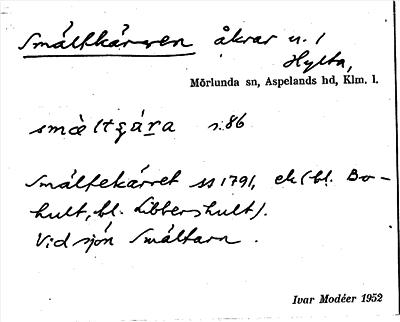 Småltkärren åkrar u. /
Hylta,
Mörlunda sn, Aspelands hd, Klm. l.
smæ̀ltɕä́ra s. 86
Smältekärret ss 1791, ek (bl. Bo-
hult, bl. Libbershult).
Vid sjön Smältarn .
Ivar Modéer 1952